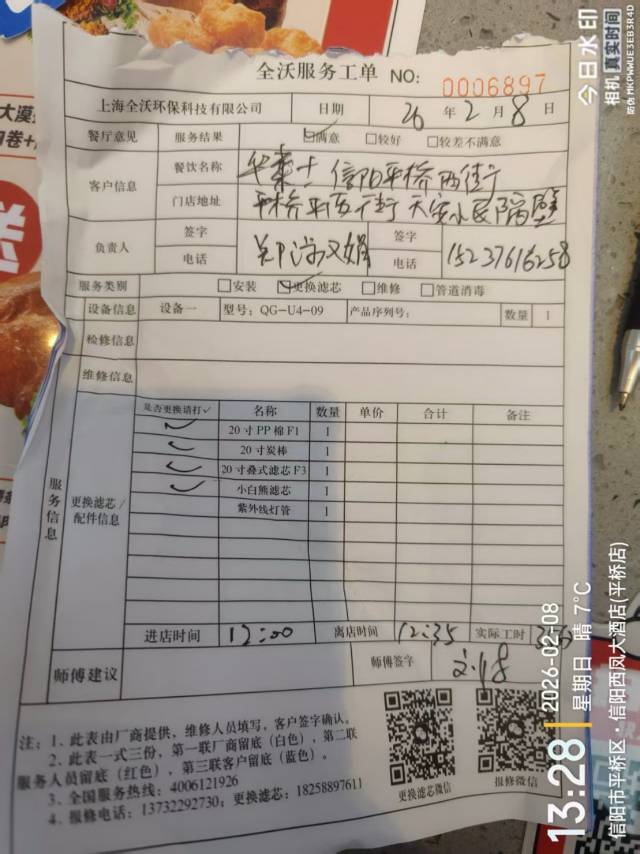 全沃服务工单 NO: 0006897
上海全沃环保科技有限公司 日期 26 年 2 月 8 日
餐厅意见 服务结果 ☑满意 □较好 □较差不满意
客户信息 餐饮名称 华莱士 信阳平桥西街
门店地址 平桥平西大街 天安小区隔壁
负责人 签字 签字
电话 电话 15237616258
服务类别 □安装 ☑更换滤芯 □维修 □管道消毒
设备信息 设备一 型号: QG-U4-09 产品序列号: 数量 1
检修信息
维修信息
服务信息
更换滤芯/配件信息
是否更换请打✓ 名称 数量 单价 合计 备注
✓ 20寸PP棉F1 1
✓ 20寸炭棒 1
✓ 20寸叠式滤芯F3 1
✓ 小白熊滤芯 1
紫外线灯管 1
进店时间 12:00 离店时间 12:35 实际工时
师傅建议 师傅签字
注: 1、此表由厂商提供,维修人员填写,客户签字确认。
2、此表一式三份,第一联厂商留底(白色),第二联
服务人员留底(红色),第三联客户留底(蓝色)。
3、全国服务热线: 4006121926
4、报修电话: 13732292730; 更换滤芯: 18258897611
更换滤芯微信 报修微信
今日水印
相机 真实时间
防伪 MKPKWUE3EB3R4D
13:28
2026-02-08
星期日 晴 7℃
信阳市平桥区·信阳西凤大酒店(平桥店)